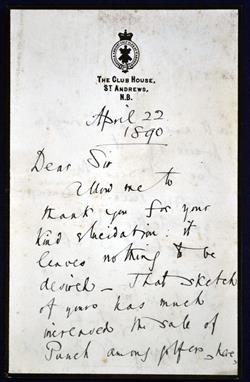 THE CLUB HOUSE,
ST ANDREWS,
N.B.
April 22
1890
Dear Sir
Allow me to
thank you for your
kind elucidation: it
leaves nothing to be
desired – That sketch
of yours has much
increased the sale of
Punch among golfers here,